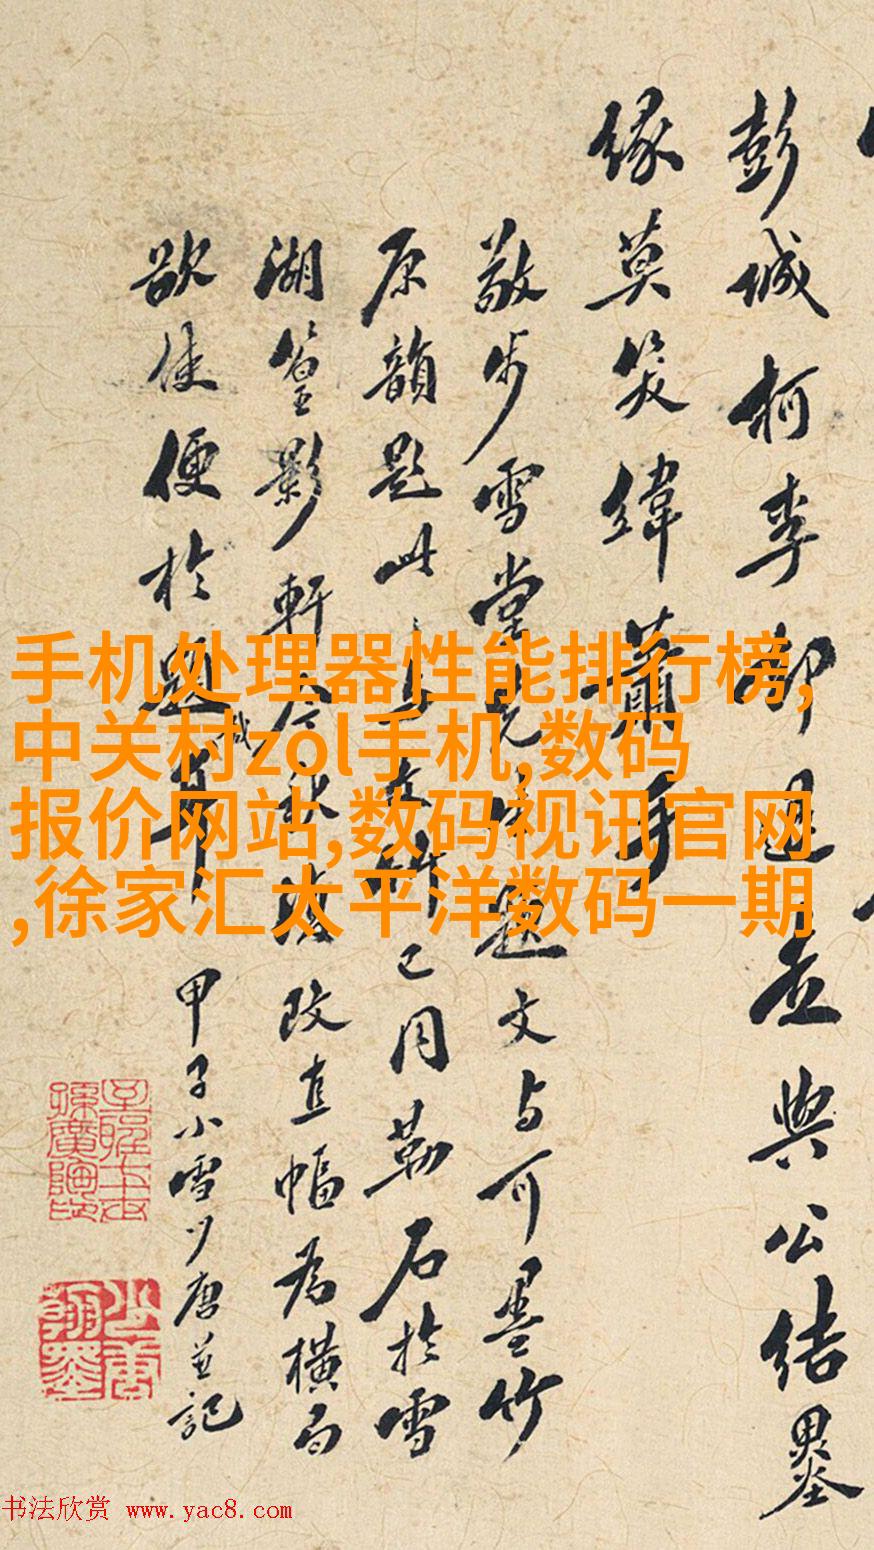 彭城柯李是並與公結墨
緣莫笑緯蕭手
敬步雪堂題文与可墨竹
原韻題此勒石於雪
湖篁影軒今秋改直幅為橫
欲使便於題
甲子小雪少唐並記
少唐翰墨
手机处理器性能排行榜,
中关村zol手机,数码
报价网站,数码视讯官网
,徐家汇太平洋数码一期
书法欣赏 www.yac8.com